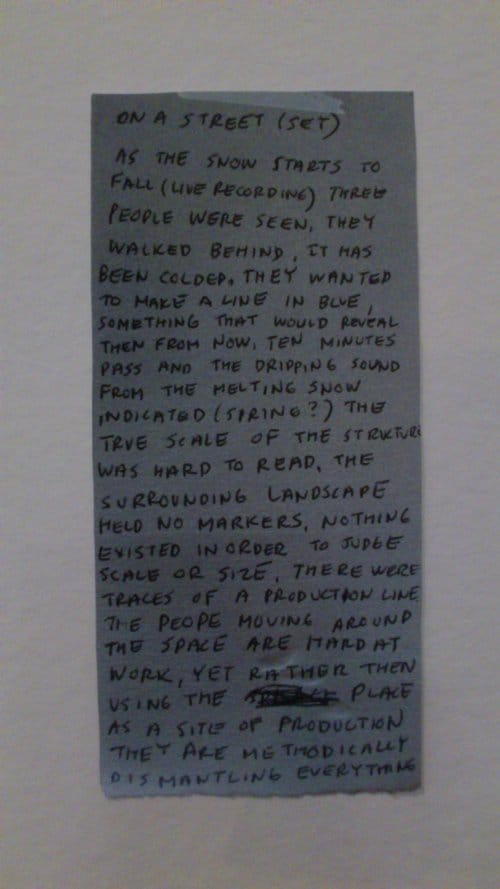 ON A STREET (SET)
AS THE SNOW STARTS TO
FALL (LIVE RECORDING) THREE
PEOPLE WERE SEEN, THEY
WALKED BEHIND, IT HAS
BEEN COLDER. THEY WANTED
TO MAKE A LINE IN BLUE,
SOMETHING THAT WOULD REVEAL
THEN FROM NOW, TEN MINUTES
PASS AND THE DRIPPING SOUND
FROM THE MELTING SNOW
INDICATED (SPRING?) THE
TRUE SCALE OF THE STRUCTURE
WAS HARD TO READ, THE
SURROUNDING LANDSCAPE
HELD NO MARKERS, NOTHING
EXISTED IN ORDER TO JUDGE
SCALE OR SIZE, THERE WERE
TRACES OF A PRODUCTION LINE
THE PEOPE MOVING AROUND
THE SPACE ARE HARD AT
WORK, YET RATHER THEN
USING THE PLACE
AS A SITE OF PRODUCTION
THEY ARE METHODICALLY
DISMANTLING EVERYTHING